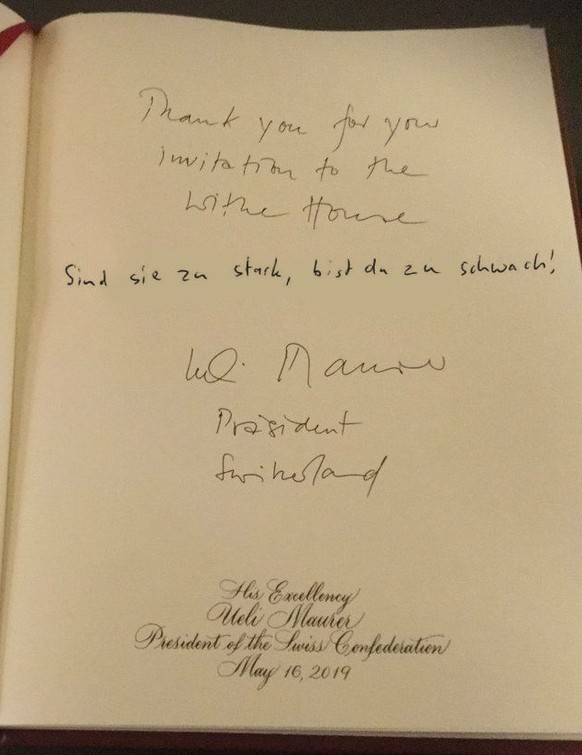 Thank you for your
invitation to the
Withe House
Sind sie zu stark, bist du zu schwach!
Ueli Maurer
Präsident
Switzerland
His Excellency
Ueli Maurer
President of the Swiss Confederation
May 16, 2019